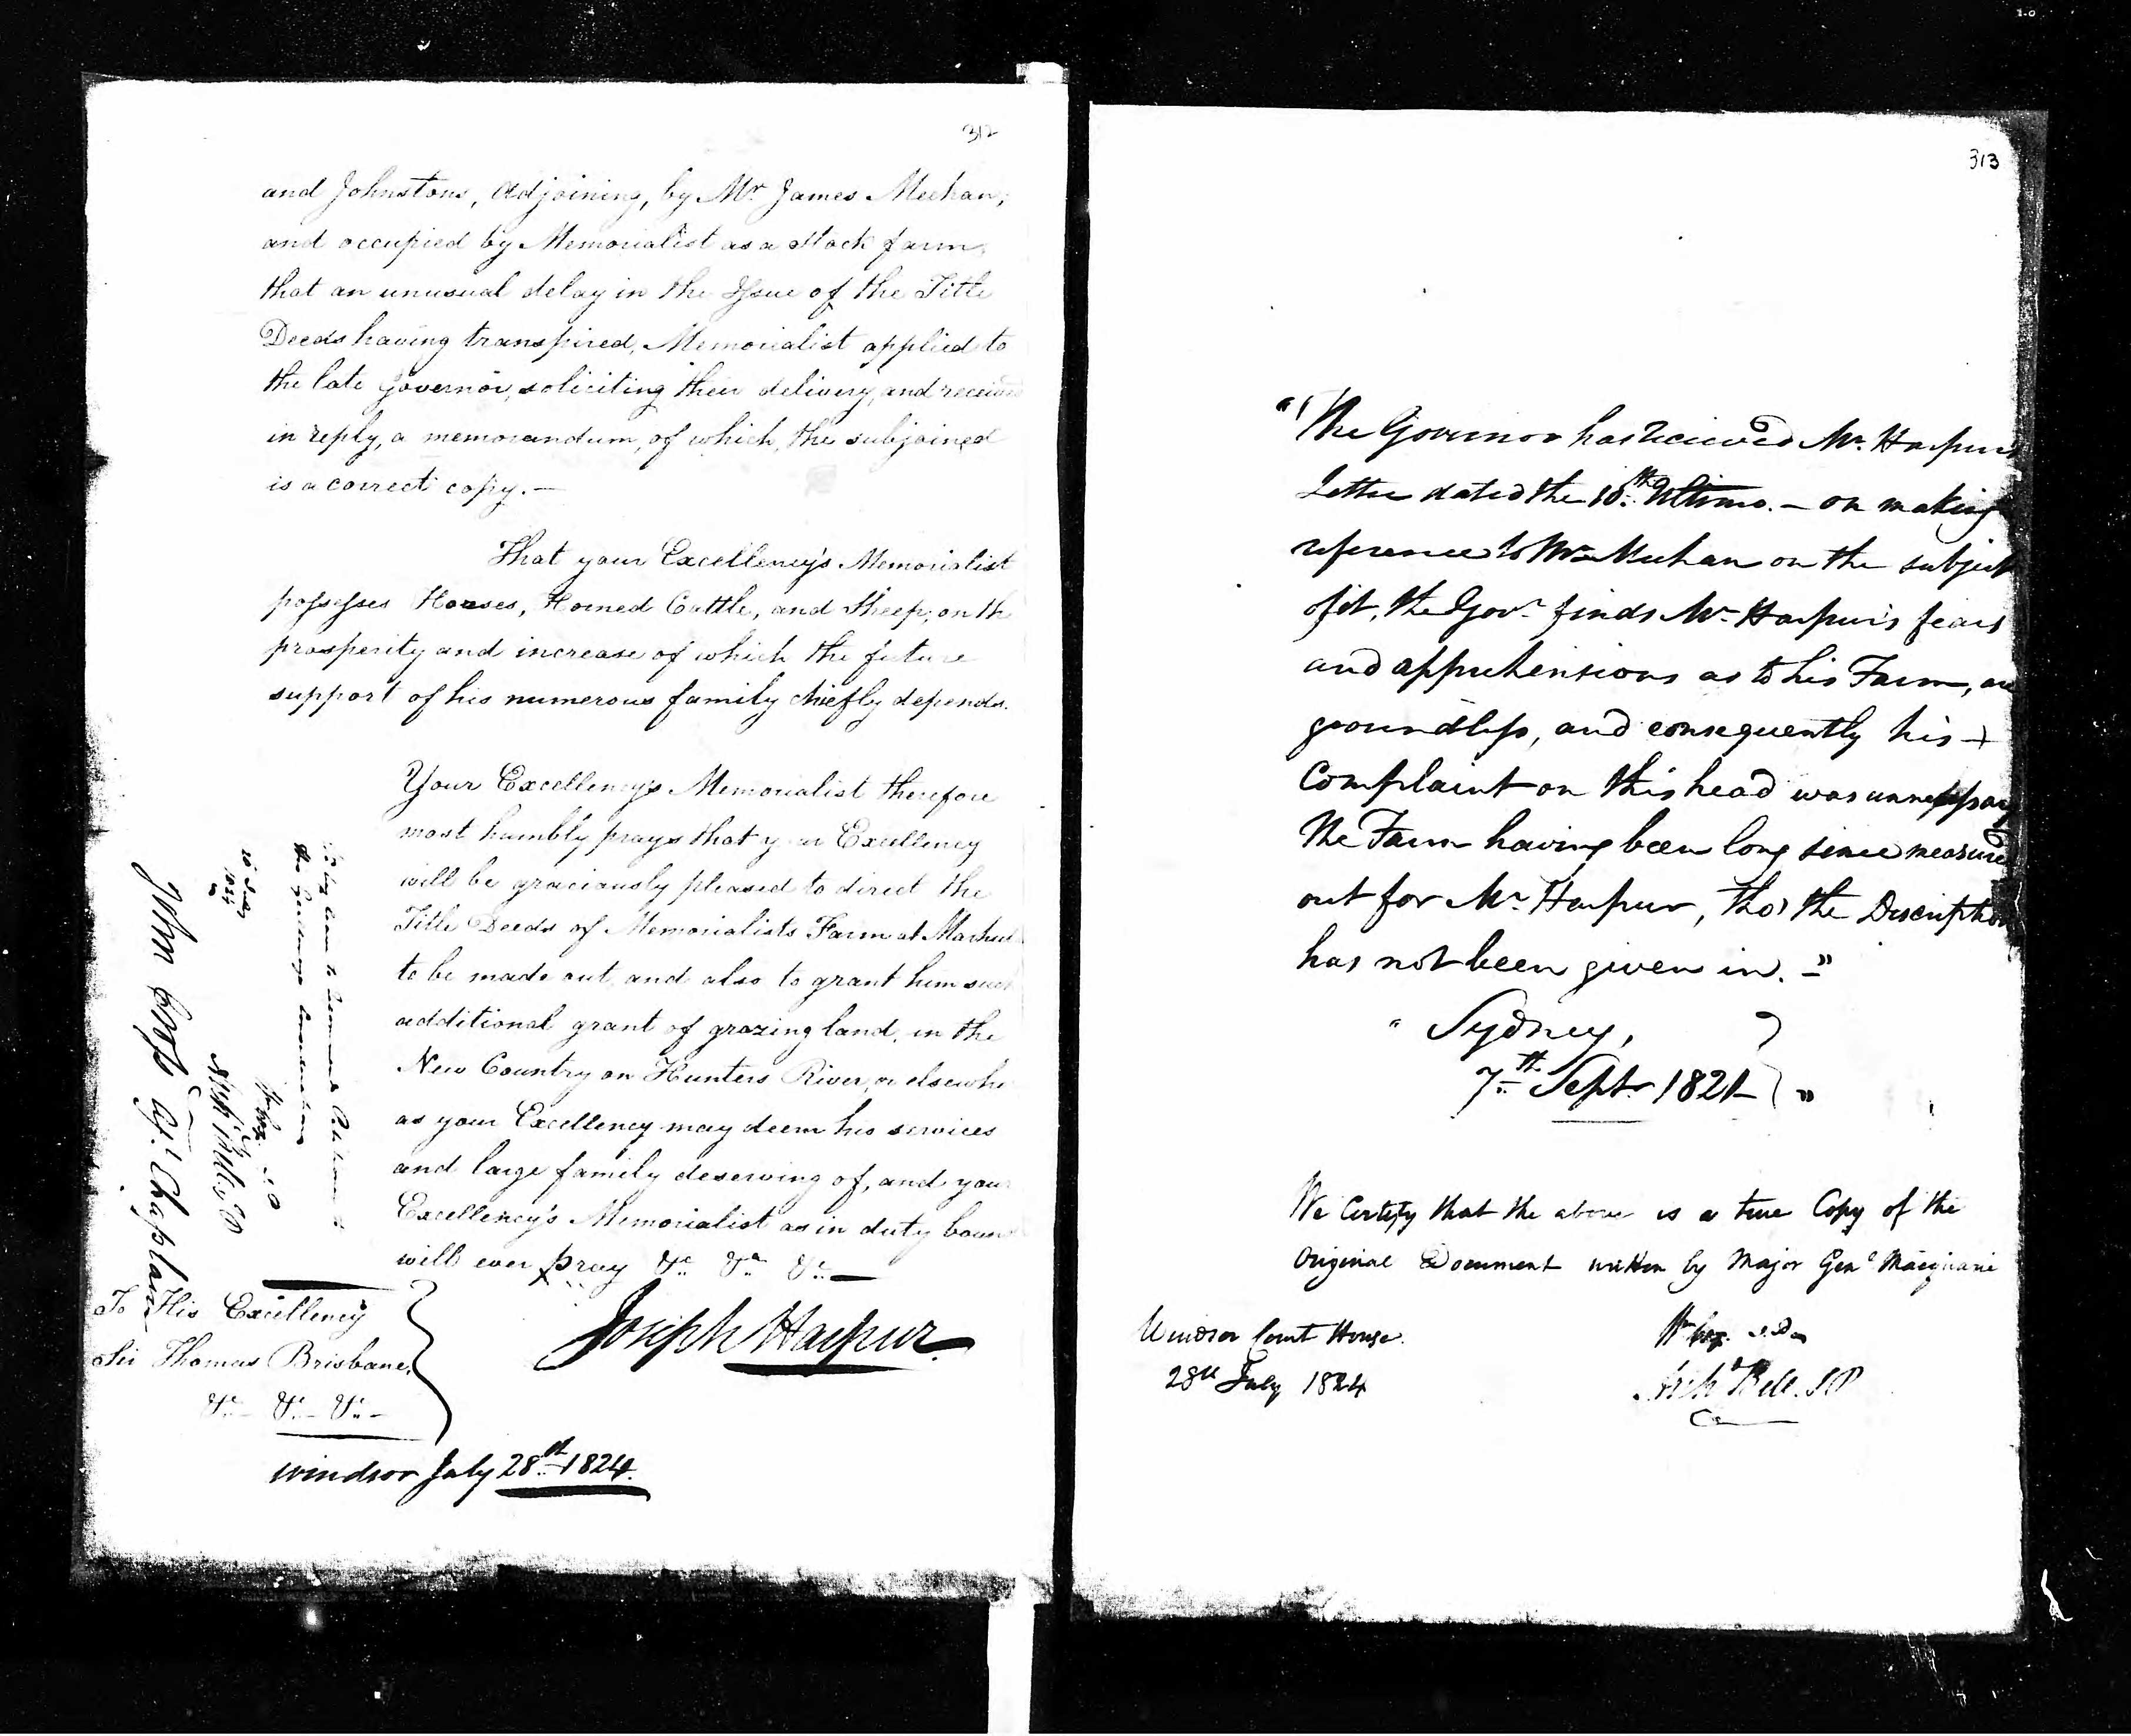 312
and Johnstons, Adjoining, by Mr. James Meehan;
and occupied by Memorialist as a Stock farm,
that an unusual delay in the Issue of the Title
Deeds having transpired, Memorialist applied to
the late Governor, soliciting their delivery, and received
in reply, a memorandum, of which, the subjoined
is a correct copy. —
That your Excellency's Memorialist
possesses Horses, Horned Cattle, and Sheep; on the
prosperity and increase of which the future
support of his numerous family chiefly depends.
Your Excellency's Memorialist therefore
most humbly prays that your Excellency
will be graciously pleased to direct the
Title Deeds of Memorialists Farm at
to be made out, and also to grant him such
additional grant of grazing land, in the
New Country on Hunters River, or elsewhe
as your Excellency may deem his services
and large family deserving of, and your
Excellency's Memorialist as in duty bound
will ever pray &c. &c. &c. —
Joseph Harpur.
To His Excellency
Sir Thomas Brisbane,
&c. &c. &c.
Windsor July 28th 1824.
beg leave to recommend
the
John Cross Ast. Chaplain
Archd Bell JP
313
"The Governor has recieved Mr. Harpur's
Letter dated the 10th. Ultimo. — on making
reference to Mr. Meehan on the subject
of it, the Govr. finds Mr. Harpur's fears
and apprehensions as to his Farm, are
groundless, and consequently his
Complaint on this head was unnecessary
the Farm having been long since measured
out for Mr. Harpur, tho' the Description
has not been given in. —"
"Sydney,
7th. Sept. 1821"
We Certify that the above is a true Copy of the
Original Document written by Major Genl Macquarie
Windsor Court House.
28th July 1824
Wm Cox
Archd Bell. JP